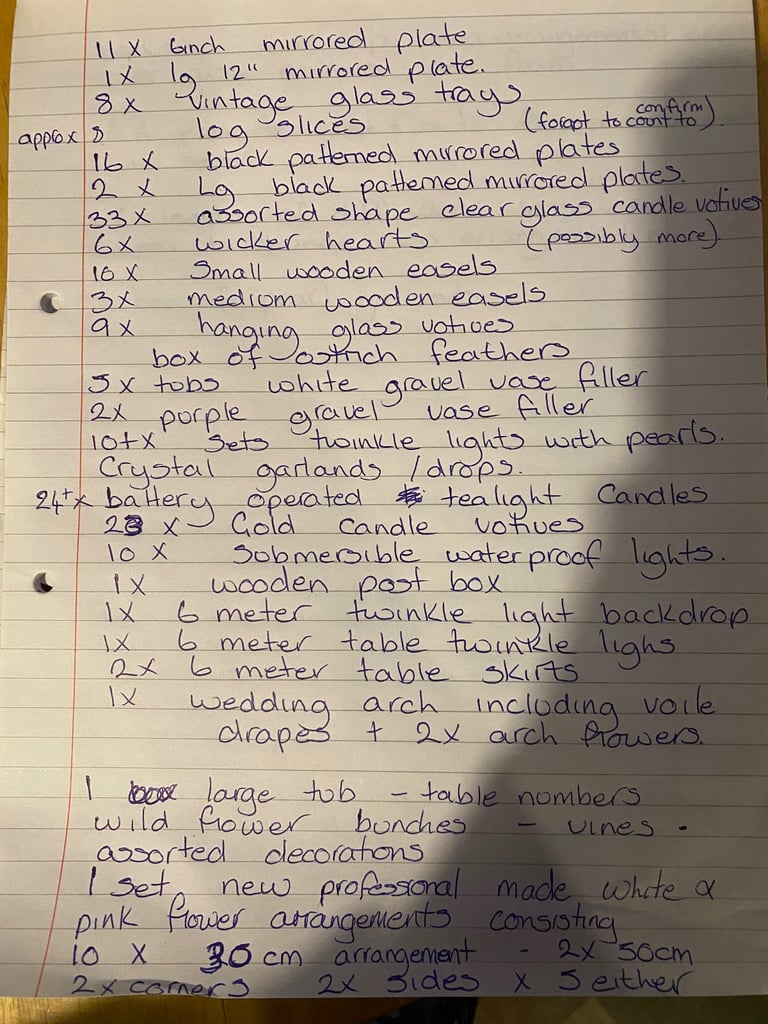 11 x 6inch mirrored plate
1x lg 12" mirrored plate.
8x vintage glass trays
approx 8 log slices (forgot to count to confirm).
16 x black patterned mirrored plates
2 x Lg black patterned mirrored plates.
33x assorted shape clear glass candle votives
6x wicker hearts (possibly more).
10 x small wooden easels
3x medium wooden easels
9x hanging glass votives
box of ostrich feathers
5x tubs white gravel vase filler
2x purple gravel vase filler
10+x sets twinkle lights with pearls.
Crystal garlands / drops.
24+x battery operated tealight Candles
23 x Gold candle votives
10 x submersible waterproof lights.
1x wooden post box
1x 6 meter twinkle light backdrop
1x 6 meter table twinkle lighs
2x 6 meter table skirts
1x wedding arch including voile
drapes + 2x arch flowers.
1 large tub - table numbers
wild flower bunches - vines.
assorted decorations
1 set new professional made white &
pink flower arrangements consisting
10 x 30cm arrangement - 2x 50cm
2x corners 2x sides x 5 either